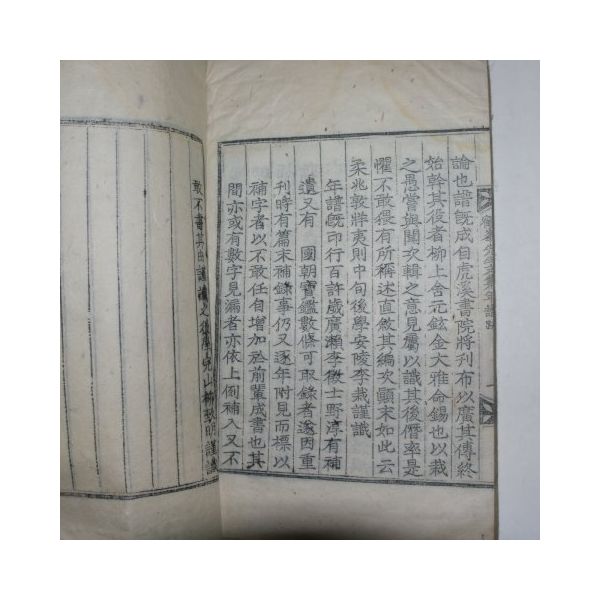 論也譜旣成自虎溪書院將刋布以廣其傳終
始幹其後者柳上舍元鉉金大雅命錫也以栽
之愚嘗與聞次輯之意見屬以識其後僭率是
懼不敢猥有所稱述直敘其編次顚末如此云
柔兆敦牂夷則中旬後學安陵李栽謹識
年譜旣印行百許歲廣瀨李徵士野淳有補
遺又有 國朝寶鑑數條可取錄者遂因重
刊時有篇末補錄事仍又逐年附見而標以
補字者以不敢任自增加於前輩成書也其
間亦或有數字見漏者亦依上例補入又不
敢不書其由謹識之